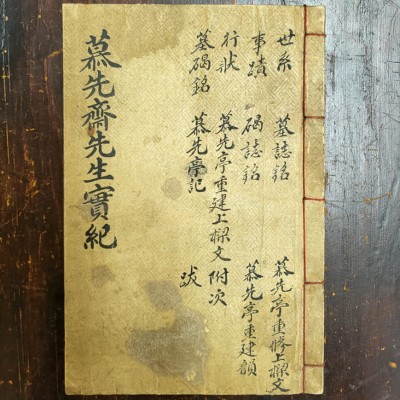 慕先齋先生實紀
世系 墓誌銘 慕先亭重上樑文
事蹟 碣誌銘 慕先亭重建韻
行狀 慕先亭重建上樑文 附次
墓碣銘 慕先亭記 跋